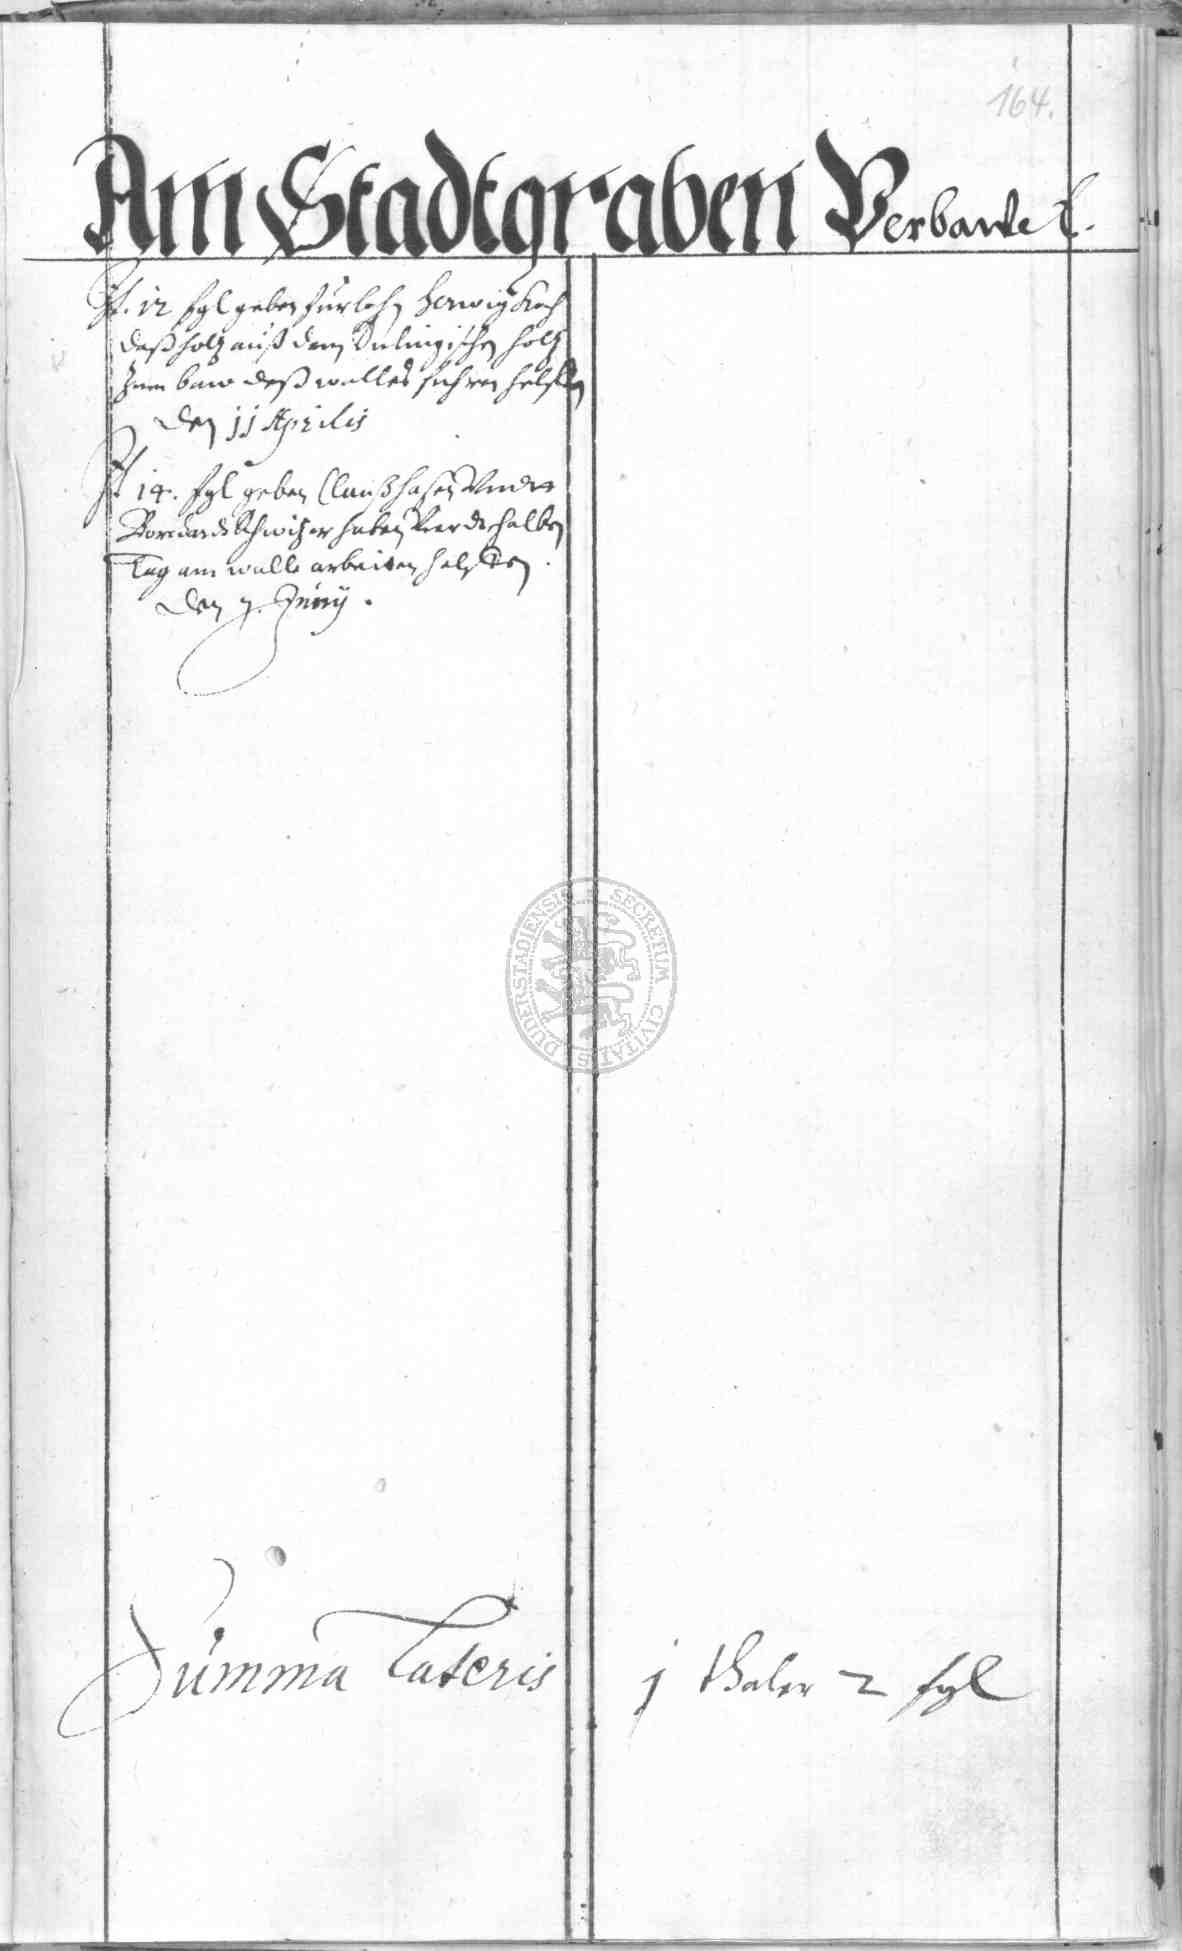 164.
Am Stadtgraben Verbawet.
It. 12 ßgl geben fürlohn Herwig Koch
daß holtz auß dem holtz
zum baw deß walles führen helffen
den 11 Aprilis
It 14. ßgl geben Clauß hasen Undt
haben
Tag am walle arbeiten helffen.
den 7. Juny.
DUDERSTADIENSIS SECRETUM CIVITATIS
Summa Lateris 1 thaler 2 ßgl